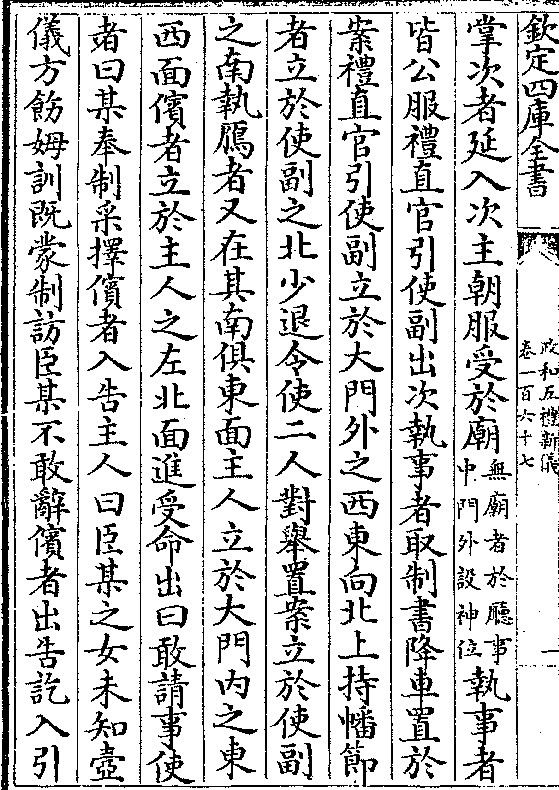 欽定四庫全書
政和五禮新儀
卷一百六十七
一
掌次者延入次主朝服受於廟無廟者於聽事中門外設神位執事者
皆公服禮直官引使副出次執事者取制書降車置於
案禮直官引使副立於大門外之西東向北上持幡節
者立於使副之北少退令使二人對舉置案立於使副
之南執鴈者又在其南俱東面主人立於大門內之東
西面儐者立於主人之左北面進受命出曰敢請事使
者曰某奉制采擇儐者入告主人曰臣某之女未知壼
儀方飭姆訓既蒙制訪臣某不敢辭儐者出告訖入引